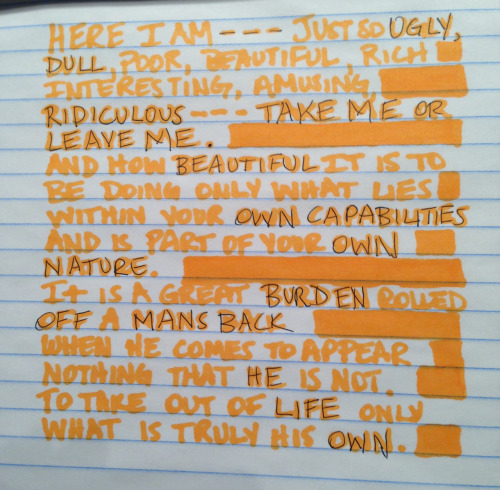 HERE I AM --- JUST SO UGLY,
DULL, POOR, BEAUTIFUL, RICH
INTERESTING, AMUSING,
RIDICULOUS --- TAKE ME OR
LEAVE ME.
AND HOW BEAUTIFUL IT IS TO
BE DOING ONLY WHAT LIES
WITHIN YOUR OWN CAPABILITIES
AND IS PART OF YOUR OWN
NATURE.
It IS A GREAT BURDEN ROLLED
OFF A MANS BACK
WHEN HE COMES TO APPEAR
NOTHING THAT HE IS NOT.
TO TAKE OUT OF LIFE ONLY
WHAT IS TRULY HIS OWN.